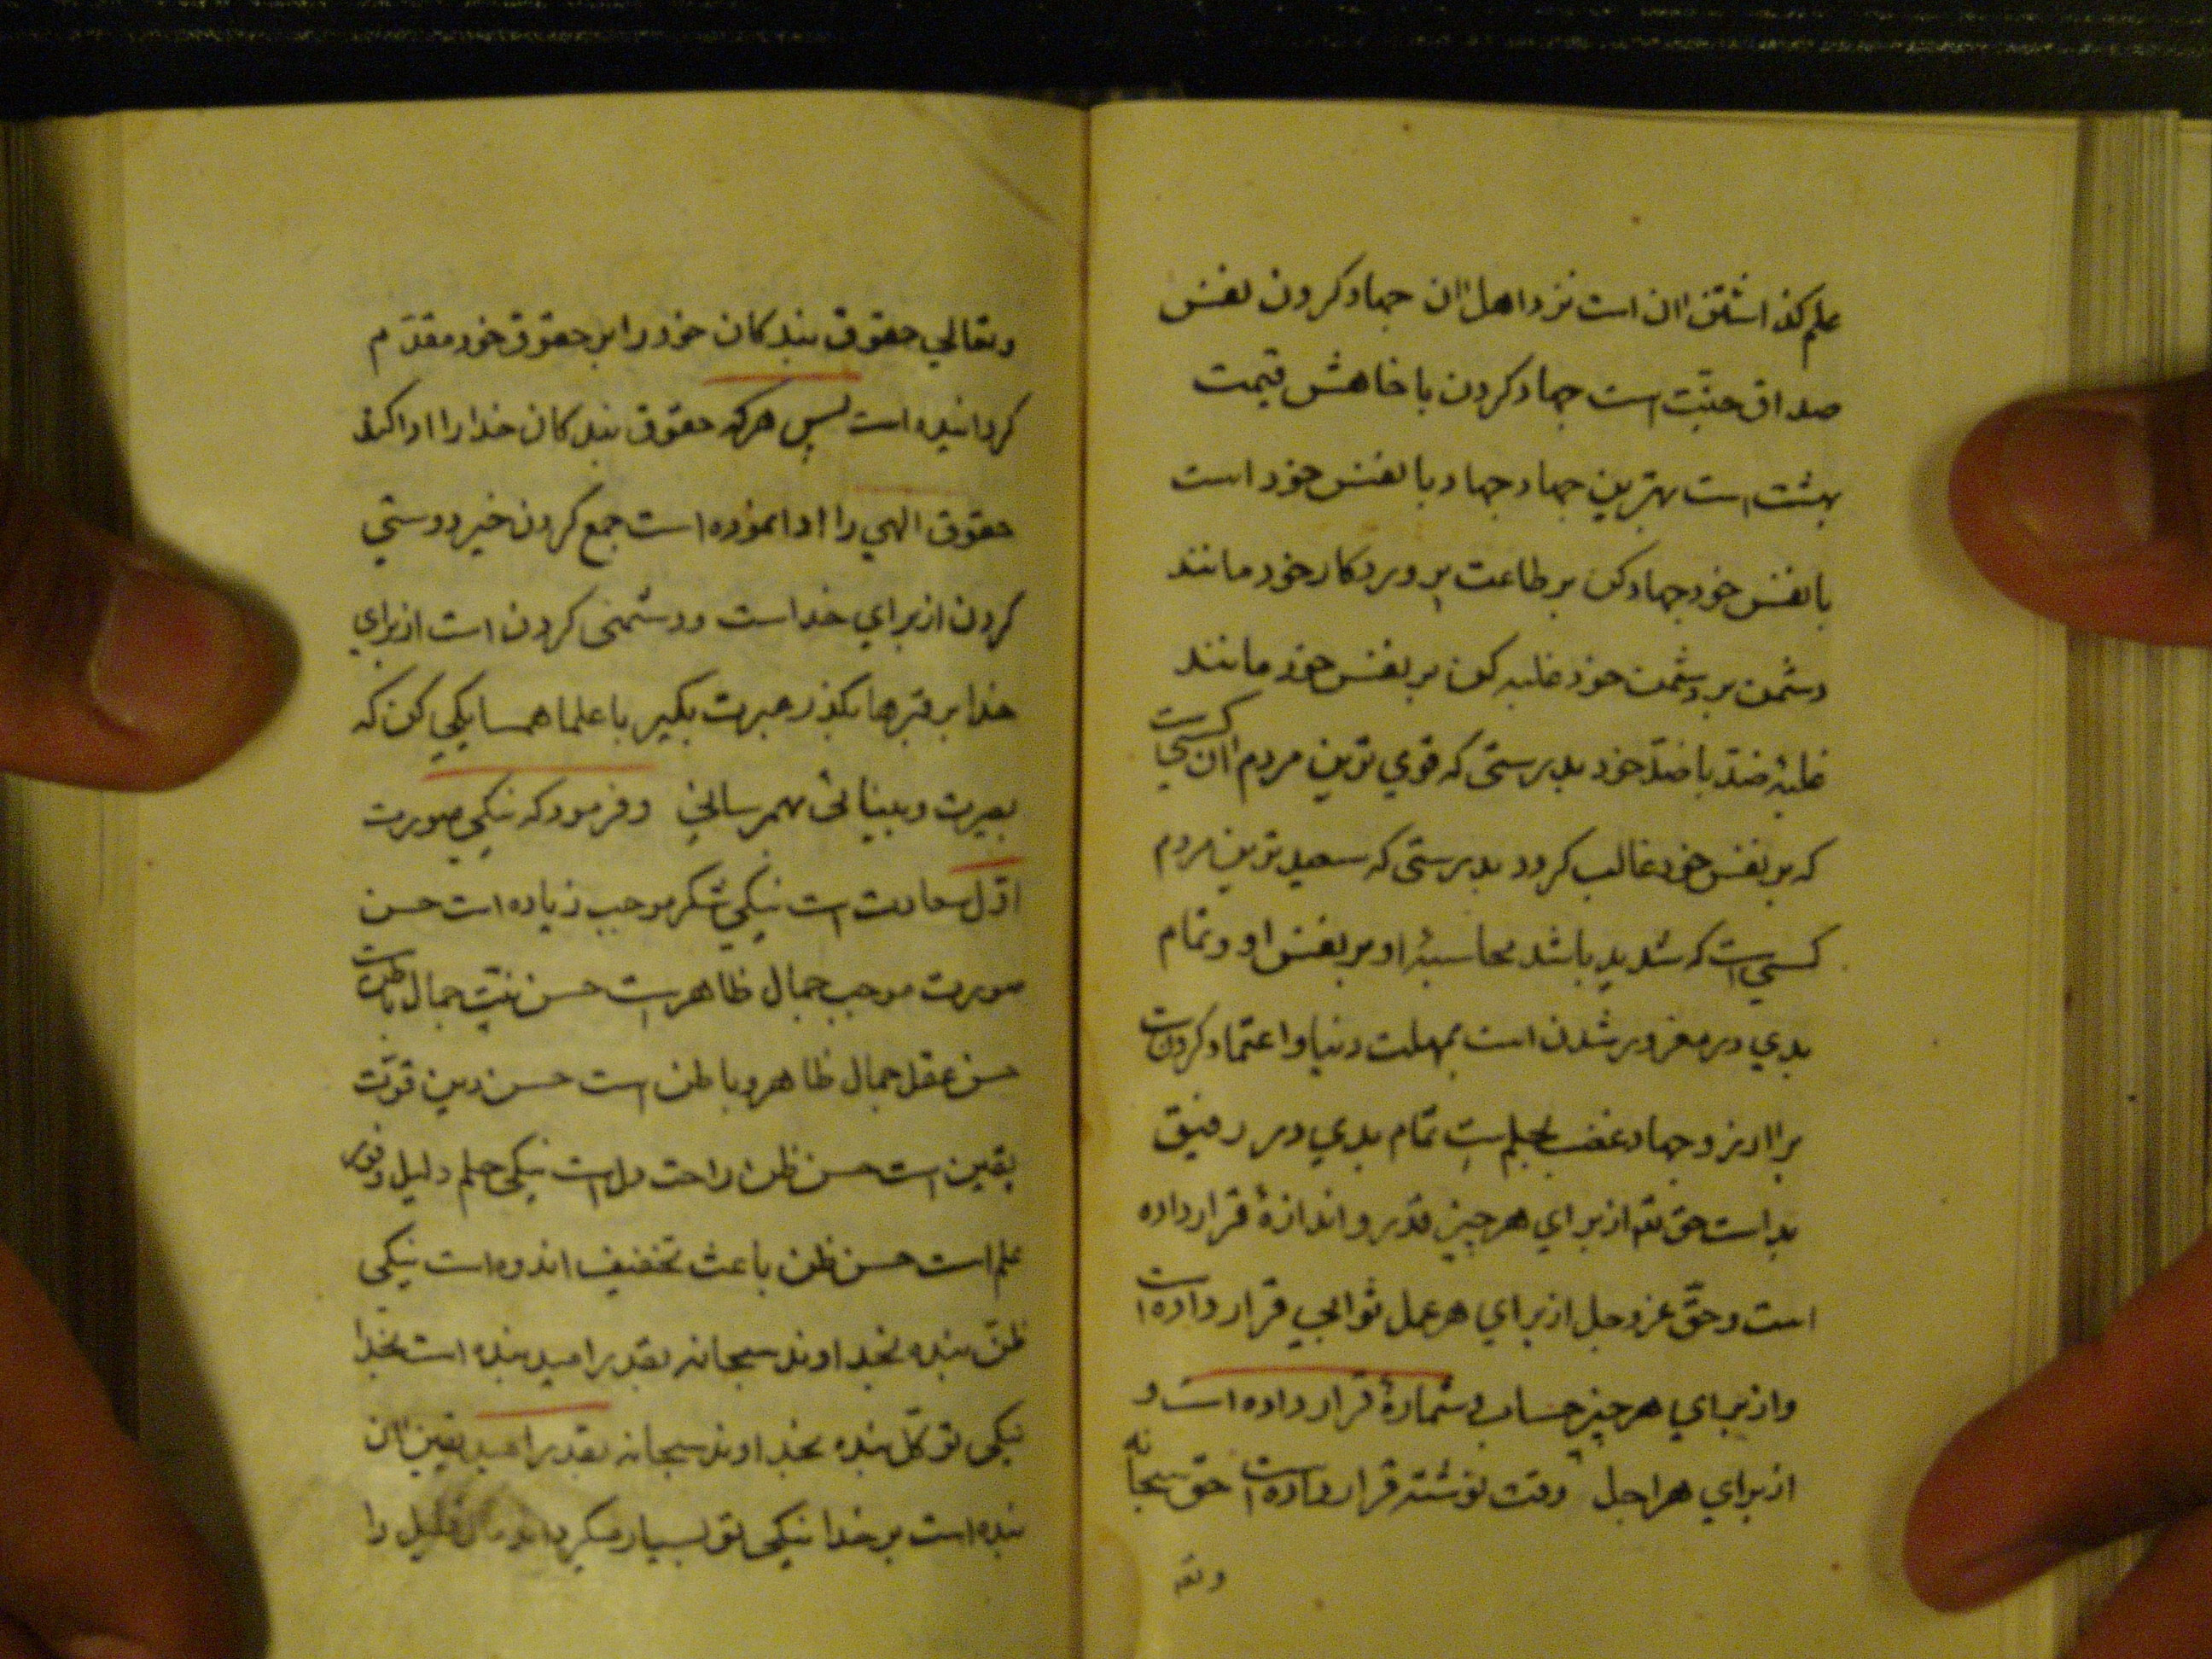 علم کذاشتن اان است نزد اهل اان جهاد کردن نفس
صداق جنّت است جهاد کردن با خاهش قیمت
بهشت است بهترین جهاد جهاد با نفس خود است
با نفس خود جهاد کن بر طاعت پروردکار خود مانند
دشمن بر دشمن خود غلبه کن بر نفس خود مانند
غلبهٔ ضدّ با ضدّ خود بدرستی که قوي ترین مردم اان کسی است
که بر نفس خود غالب کردد بدرستی که سعید ترین مردم
کسی است که شدید باشد محاسبهٔ او بر نفس او و تمام
بدي در مغرور شدن است بمهلت دنیا و اعتماد کردن است
بر اارزو جهاد غضب بحلم است تمام بدي در رفیق
بد است حق تعه از براي هر چیز قدر و اندازهٔ قرار داده
است و حقّ عز و جل از براي هر عمل ثوابی قرار داده است
و از براي هر چیز حساب و شمارهٔ قرار داده است و
از براي هر اجل وقت نوشته قرار داده است حق سبحانه
و تعه
و تعالی حقوق بندکان خود را بر حقوق خود مقدّم
کردانیده است پس هر که حقوق بندکان خدا را ادا کند
حقوق الهی را ادا نموده است جمع کردن خیر دوستی
کردن از براي خداست و دشمنی کردن است از براي
خدا بر قبرها بکذر عبرت بکیر با علما همسایکی کن که
بصیرت و بینائی بهمرسانی و فرمود که نیکی صورت
اوّل سعادت است نیکی شکر موجب زیاده است حسن
صورت موجب جمال ظاهر است حسن نیّت جمال باطن است
حسن عقل جمال ظاهر و باطن است حسن دین قوّت
یقین است حسن ظن راحت دل است نیکی حلم دلیل وفور
علم است حسن ظن باعث تخفیف اندوه است نیکی
ظنّ بنده بخداوند سبحانه بقدر امید بنده است بخدا
نیکی توکّل بنده بخداوند سبحانه بقدر امید یقین اان
بنده است بر خدا نیکی بسیار میکرداند قلیل را